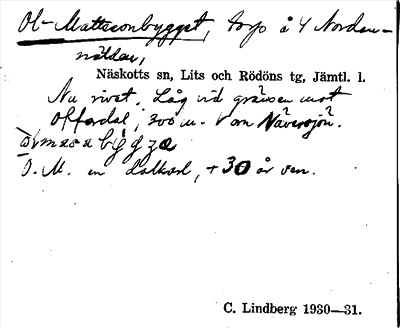 Ol-Mattssonbygget, torp å 4 Norder-
nälden,
Näskotts sn, Lits och Rödöns tg, Jämtl. l.
Nu rivet. Låg vid gränsen mot
Offerdal, 300 m. V om Näversjön.
O. M. en dalkarl, + 30 år sen.
C. Lindberg 1930—31.